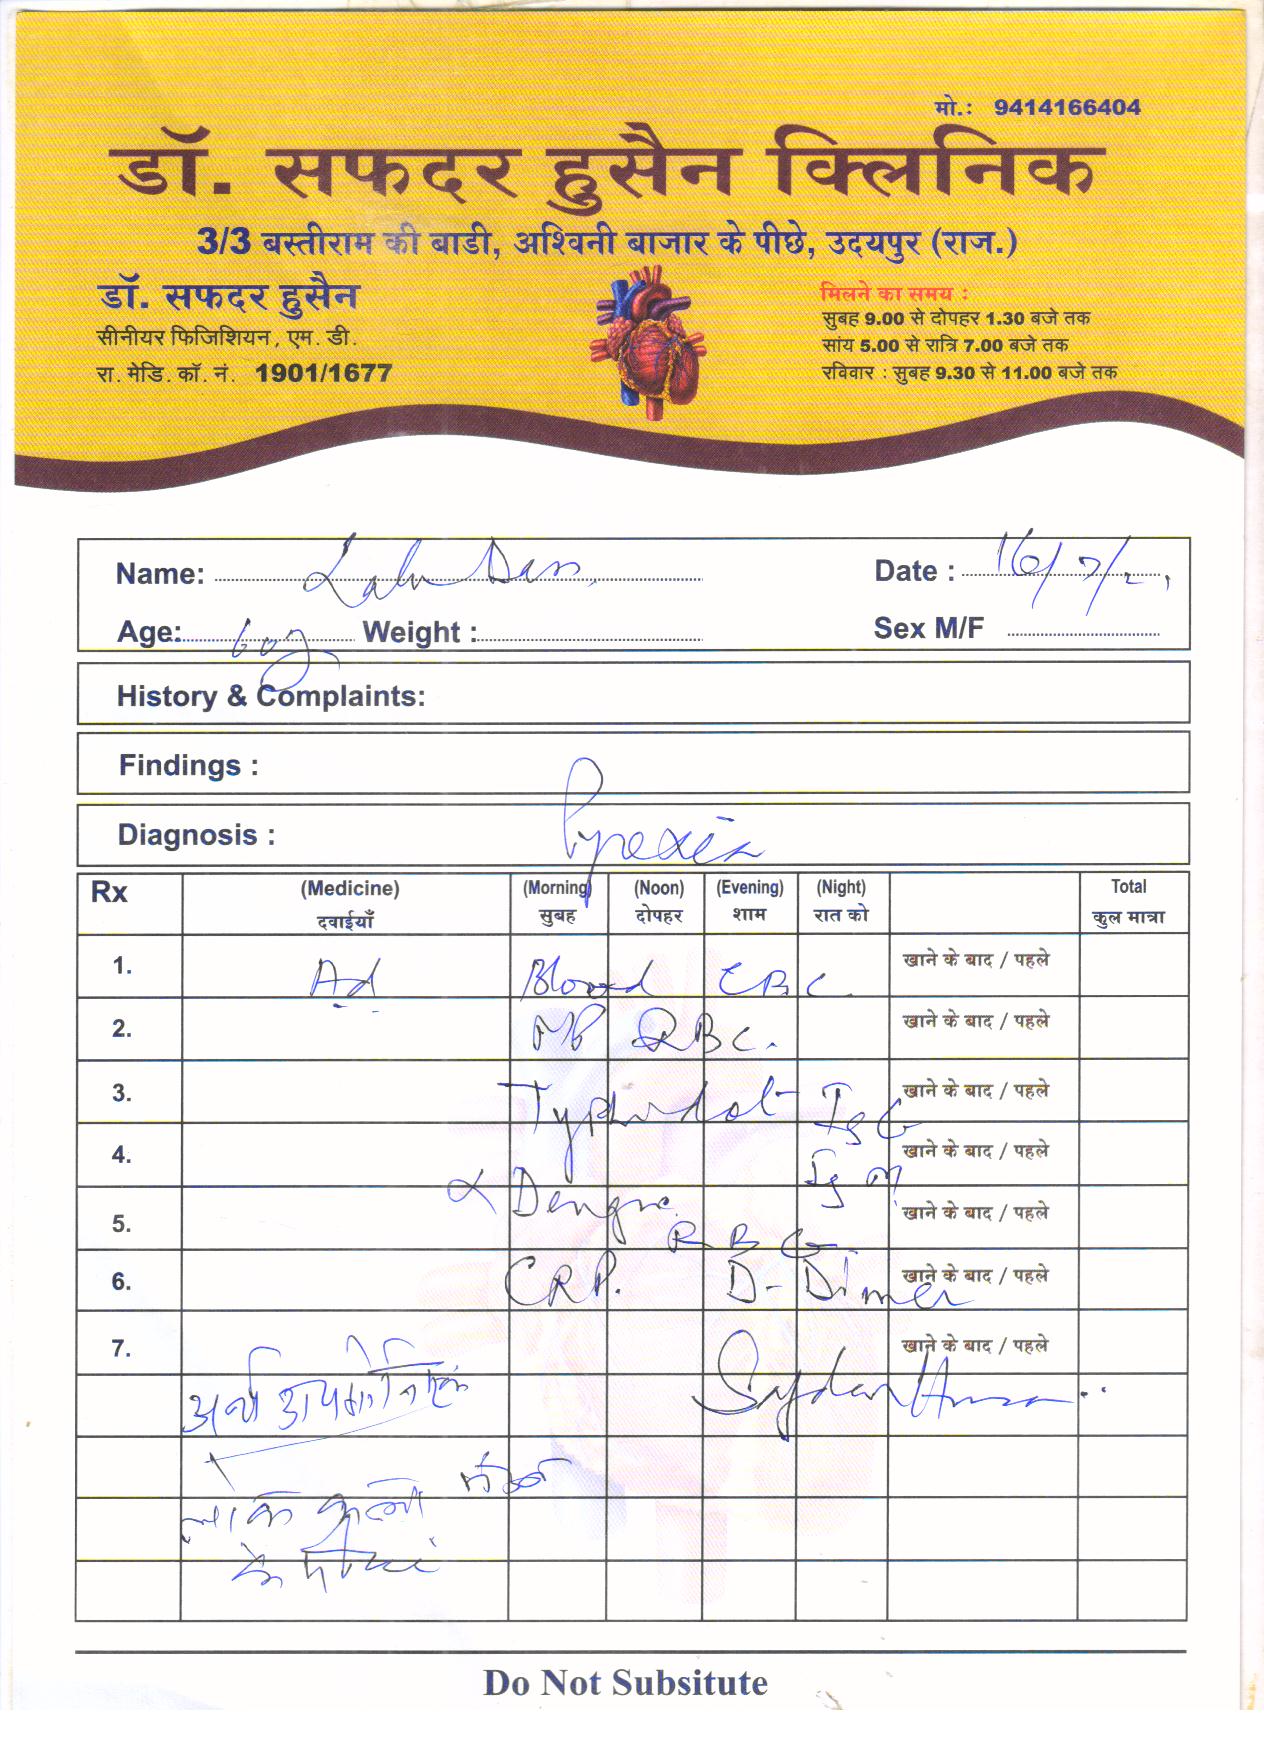 मो.: 9414166404
डॉ. सफदर हुसैन क्लिनिक
3/3 बस्तीराम की बाडी, अश्विनी बाजार के पीछे, उदयपुर (राज.)
डॉ. सफदर हुसैन
सीनीयर फिजिशियन, एम. डी.
रा. मेडि. कॉ. नं. 1901/1677
मिलने का समय :
सुबह 9.00 से दोपहर 1.30 बजे तक
सांय 5.00 से रात्रि 7.00 बजे तक
रविवार : सुबह 9.30 से 11.00 बजे तक
Name: Date : 16/7/21
Age: 60y Weight : Sex M/F
History & Complaints:
Findings :
Diagnosis : Pyrexia
Rx (Medicine) (Morning) (Noon) (Evening) (Night) Total
दवाईयाँ सुबह दोपहर शाम रात को कुल मात्रा
1. Ad Blood CBC खाने के बाद / पहले
2. MP RBC. खाने के बाद / पहले
3. Typhidot IgG खाने के बाद / पहले
4. IgM खाने के बाद / पहले
5. Dengue खाने के बाद / पहले
6. CRP. D-Dimer खाने के बाद / पहले
7. खाने के बाद / पहले
Do Not Subsitute